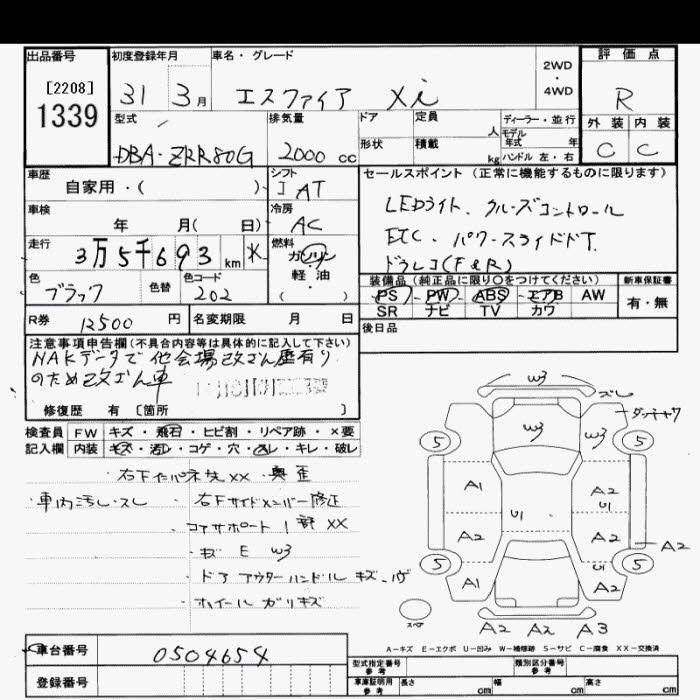 出品番号 初度登録年月 車名・グレード 評価点
[2208] 2WD
1339 31 3月 エスファイア Xi ・ R
4WD
型式 排気量 ドア 定員 人 ディーラー・並行 外装 内装
DBA-ZRR80G 2000 cc 形状 積載 kg モデル年式 年 C C
ハンドル 左・右
車歴 シフト セールスポイント(正常に機能するものに限ります)
自家用・( ) I AT LEDライト、クルーズコントロール
車検 冷房 ETC・パワースライドドア
年 月( 日) AC ドラレコ(F&R)
走行 3万5千693 km 燃料 ガソリン 軽・油 ( )
色 ブラック 色替 色コード 202
装備品(純正品に限り○をつけてください) 新車保証書
PS PW ABS エアB AW 有・無
SR ナビ TV カワ
R券 12500 円 名変期限 月 日 後日品
注意事項申告欄(不具合内容等は具体的に記入して下さい)
NAKデータで他会場改ざん歴有り
のため改ざん車
修復歴 有 [箇所 ]
検査員 FW キズ・飛石・ヒビ割・リペア跡・×要
記入欄 内装 キズ・汚レ・コゲ・穴・スレ・キレ・破レ
右下インパネ XX 奥歪
車内汚レ・スレ 右下サイドメンバー修正
コアサポート1部XX
キズ E W3
ドア アウターハンドル キズ
ホイール ガリキズ
W3
ズレ
W3 W3
5 5
A1 A2
U1 U1
A2 A2 A2
5 U1 5
A1 A2
スペア
A2 A2 A3
A-キズ E-エクボ U-凹み W-補修跡 S-サビ C-腐食 XX-交換済
車台番号 0504654
登録番号
型式指定番号 参考 類別区分番号 参考
車庫証明用 参考 長さ cm 幅 cm 高さ cm